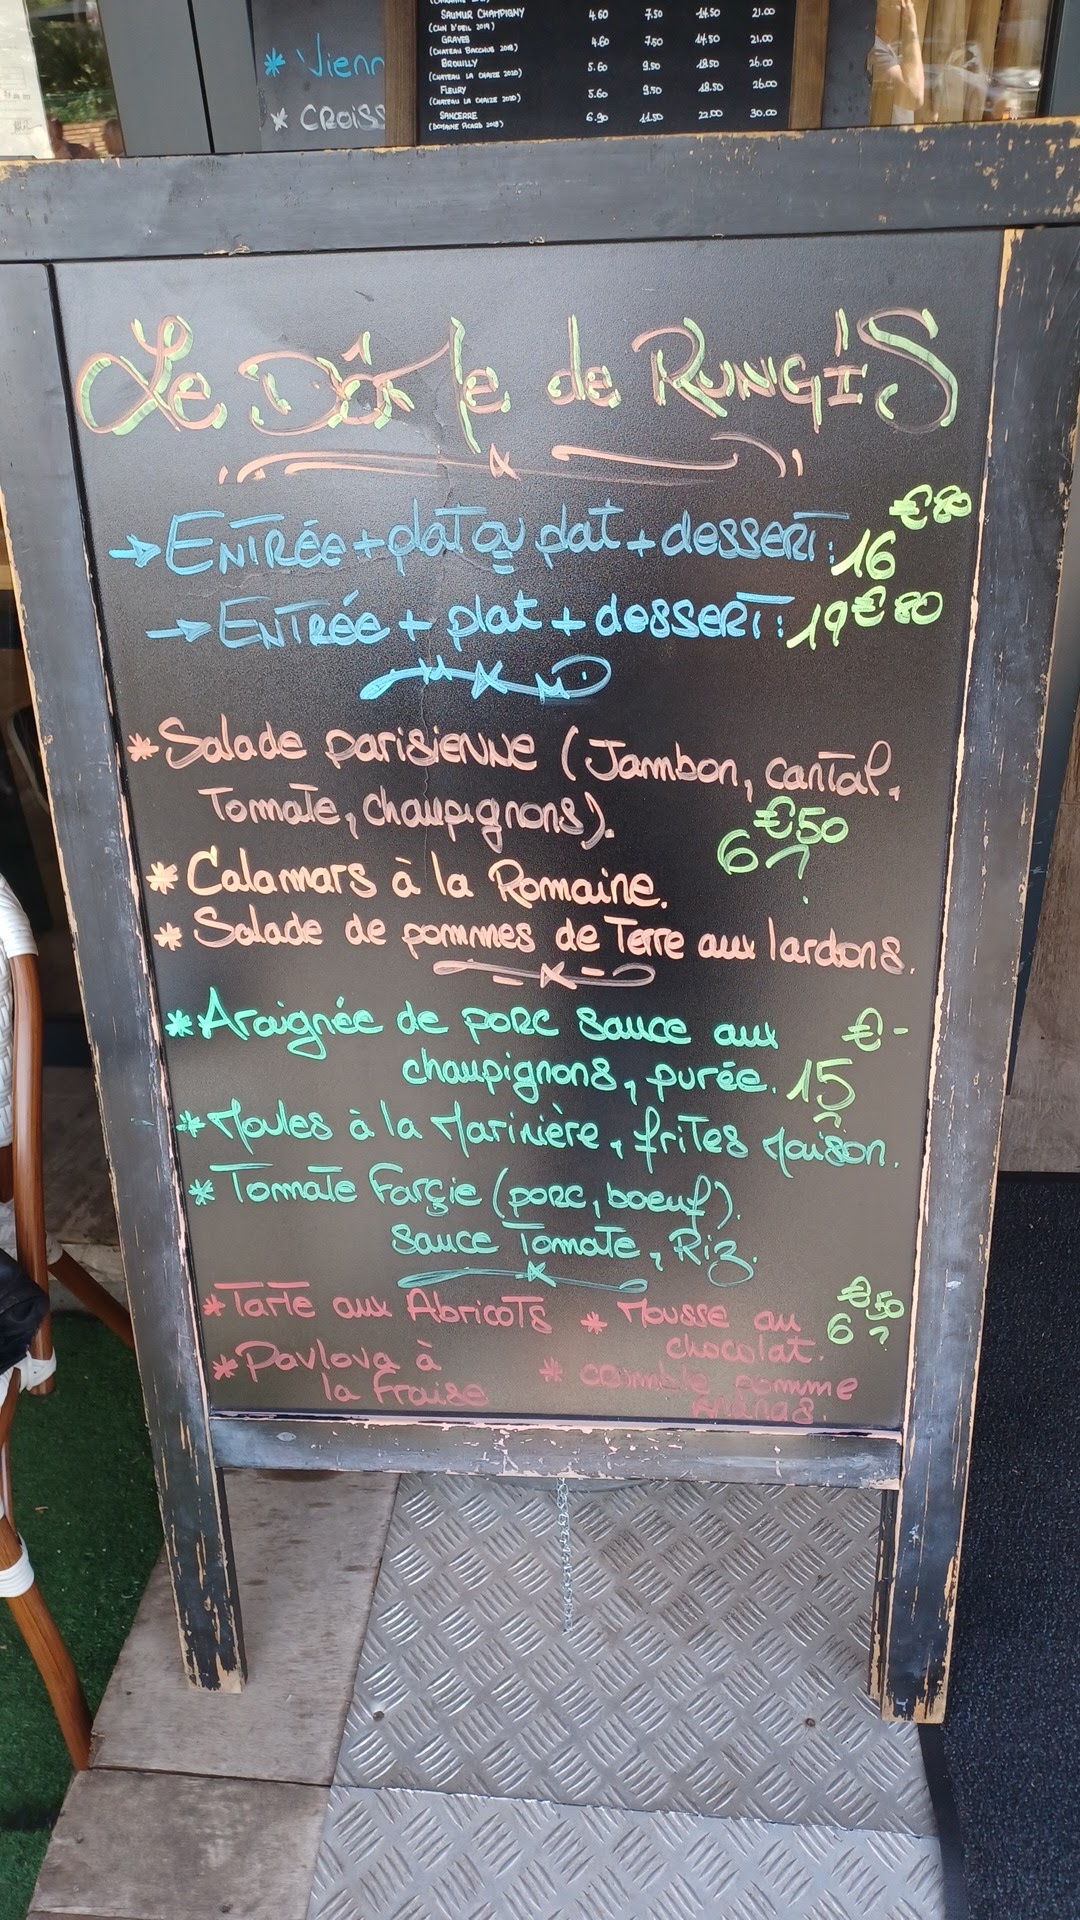 SAUMUR CHAMPIGNY 4.60 7.50 14.50 21.00
(CLIN D'OEIL 2019)
GRAVES 4.60 7.50 14.50 21.00
(CHATEAU BACCHUS 2018)
BROUILLY 5.60 9.50 18.50 26.00
(CHATEAU LA CHAIZE 2020)
FLEURY 5.60 9.50 18.50 26.00
(CHATEAU LA CHAIZE 2020)
SANCERRE 6.90 11.50 22.00 30.00
(DOMAINE PICARD 2018)
* Vienn
* CROISS
Le Dôme de RUNGIS
→ ENTRÉE + plat ou plat + dessERT : 16€80
→ ENTRÉE + plat + dessERT : 19€80
* Salade parisienne (Jambon, cantal,
Tomate, champignons).
6€50
* Calamars à la Romaine.
* Salade de pommes de Terre aux lardons.
* Araignée de porc sauce aux
champignons, purée. 15€-
* Moules à la Marinière, frites Maison.
* Tomate Farçie (porc, boeuf).
Sauce Tomate, Riz.
* Tarte aux Abricots * Mousse au
chocolat. 6€50
* Pavlova à
la Fraise
* crumble pomme
Ananas.